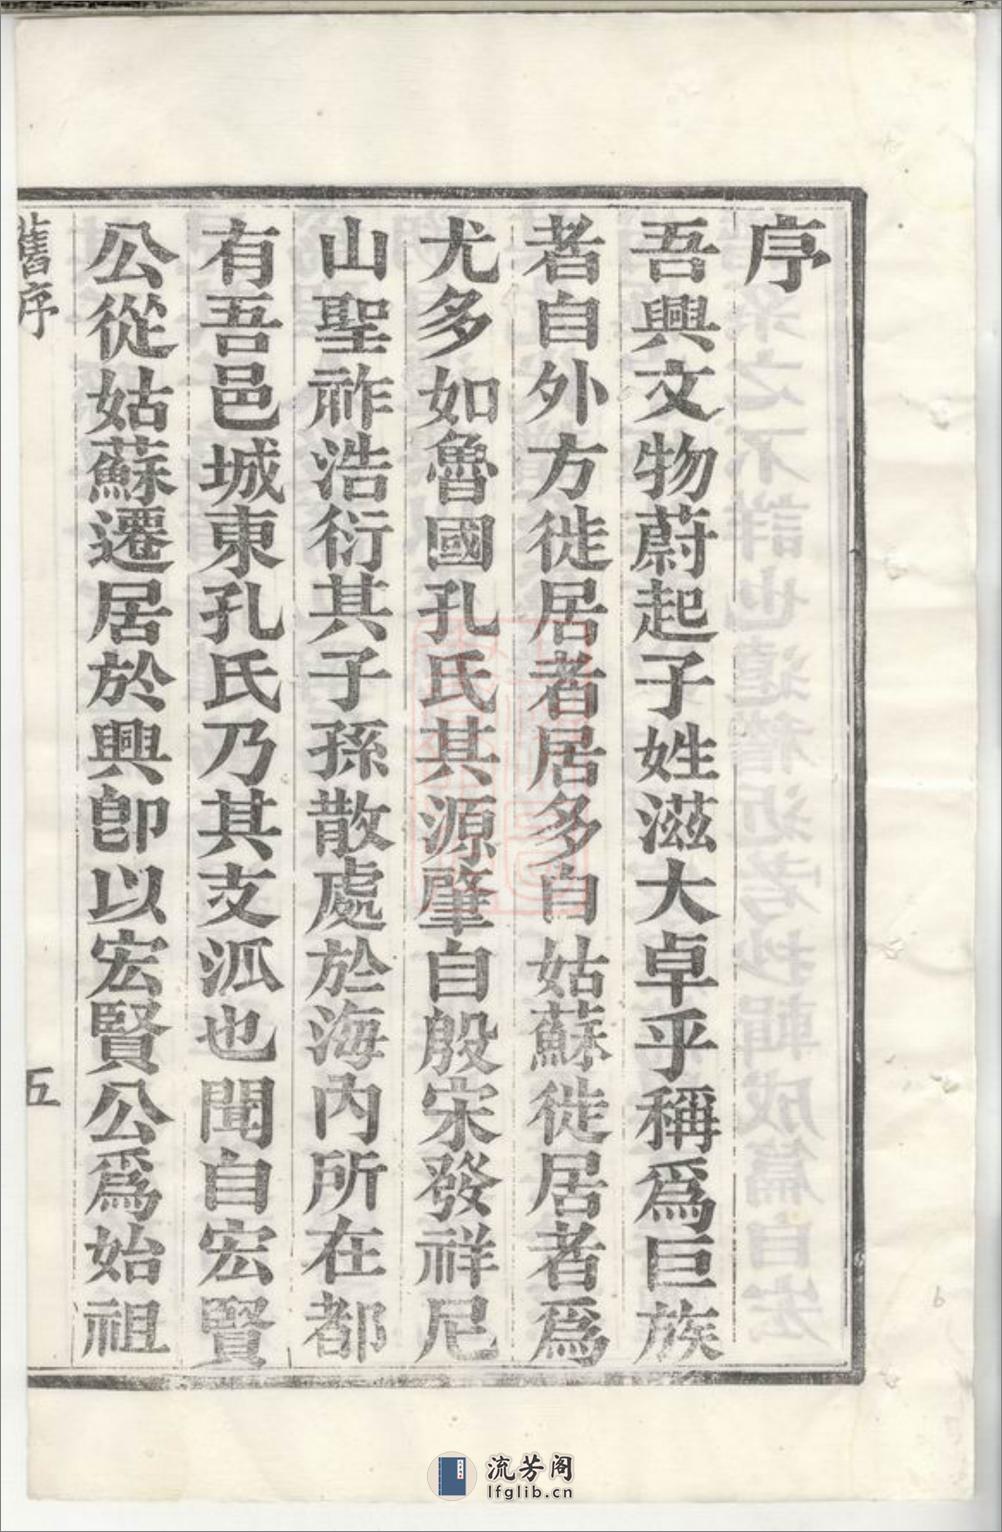 序
吾興文物蔚起子姓滋大卓乎稱爲巨族
者自外方徙居者居多自姑蘇徙居者爲
尤多如魯國孔氏其源肇自殷宋發祥尼
山聖祚浩衍其子孫散處於海内所在都
有吾邑城東孔氏乃其支泒也聞自宏賢
公從姑蘇遷居於興卽以宏賢公爲始祖
舊序
五
流芳阁
lfglib.cn